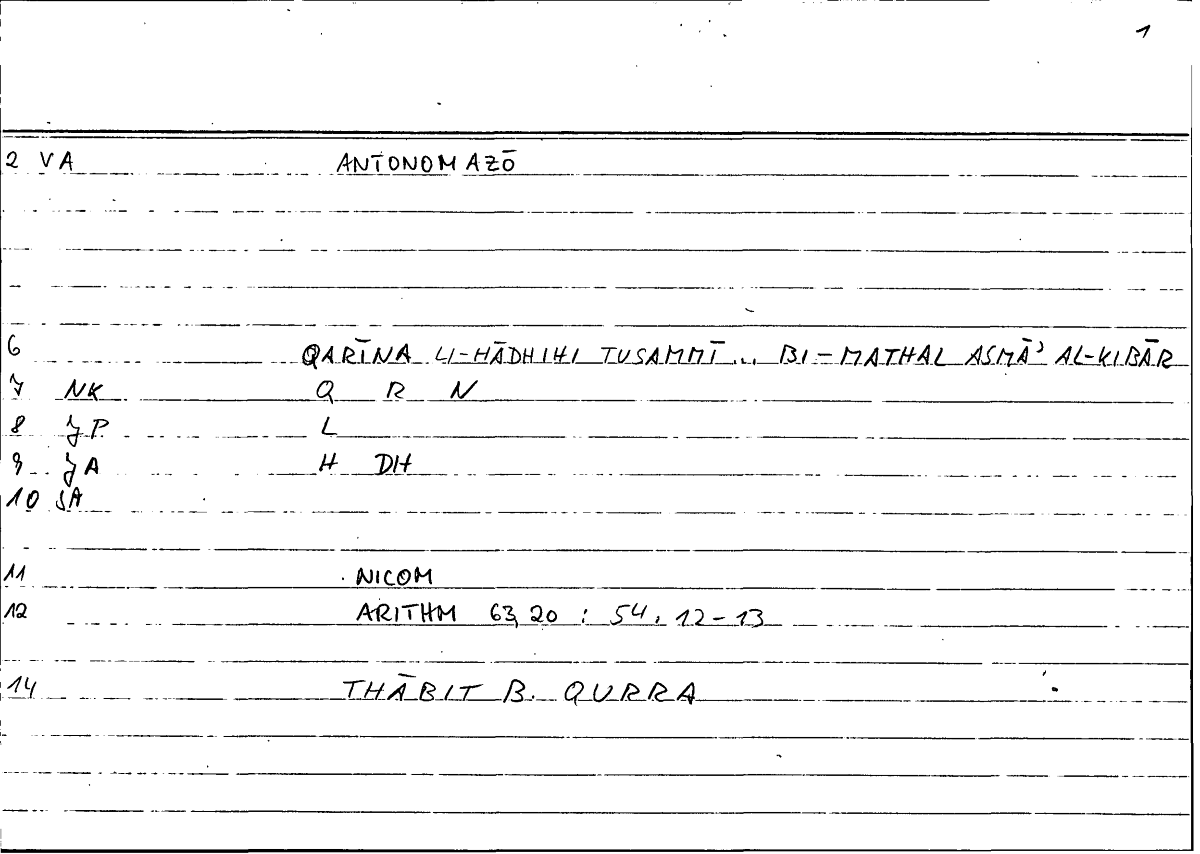 1
2 VA ANTONOMAZŌ
6 QARĪNA LI-HĀDHIHI TUSAMMĪ... BI-MATHAL ASMĀʾ AL-KIBĀR
7 NK Q R N
8 JP L
9 JA H DH
10 SA
11 NICOM
12 ARITHM 63,20 : 54,12-13
14 THĀBIT B. QURRA